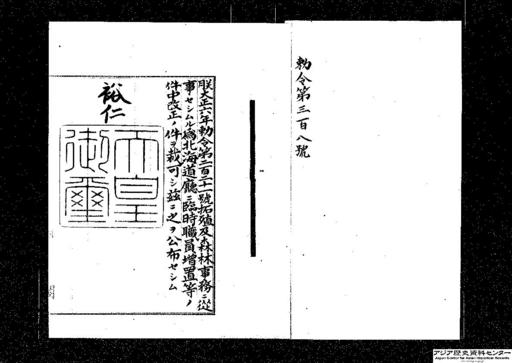 勅令第三百八號
朕大正六年勅令第二百二十一號拓殖及森林事務ニ從
事セシムル爲北海道廳ニ臨時職員增置等ノ
件中改正ノ件ヲ裁可シ茲ニ之ヲ公布セシム
裕仁
天皇
御璽
アジア歴史資料センター
Japan Center for Asian Historical Records